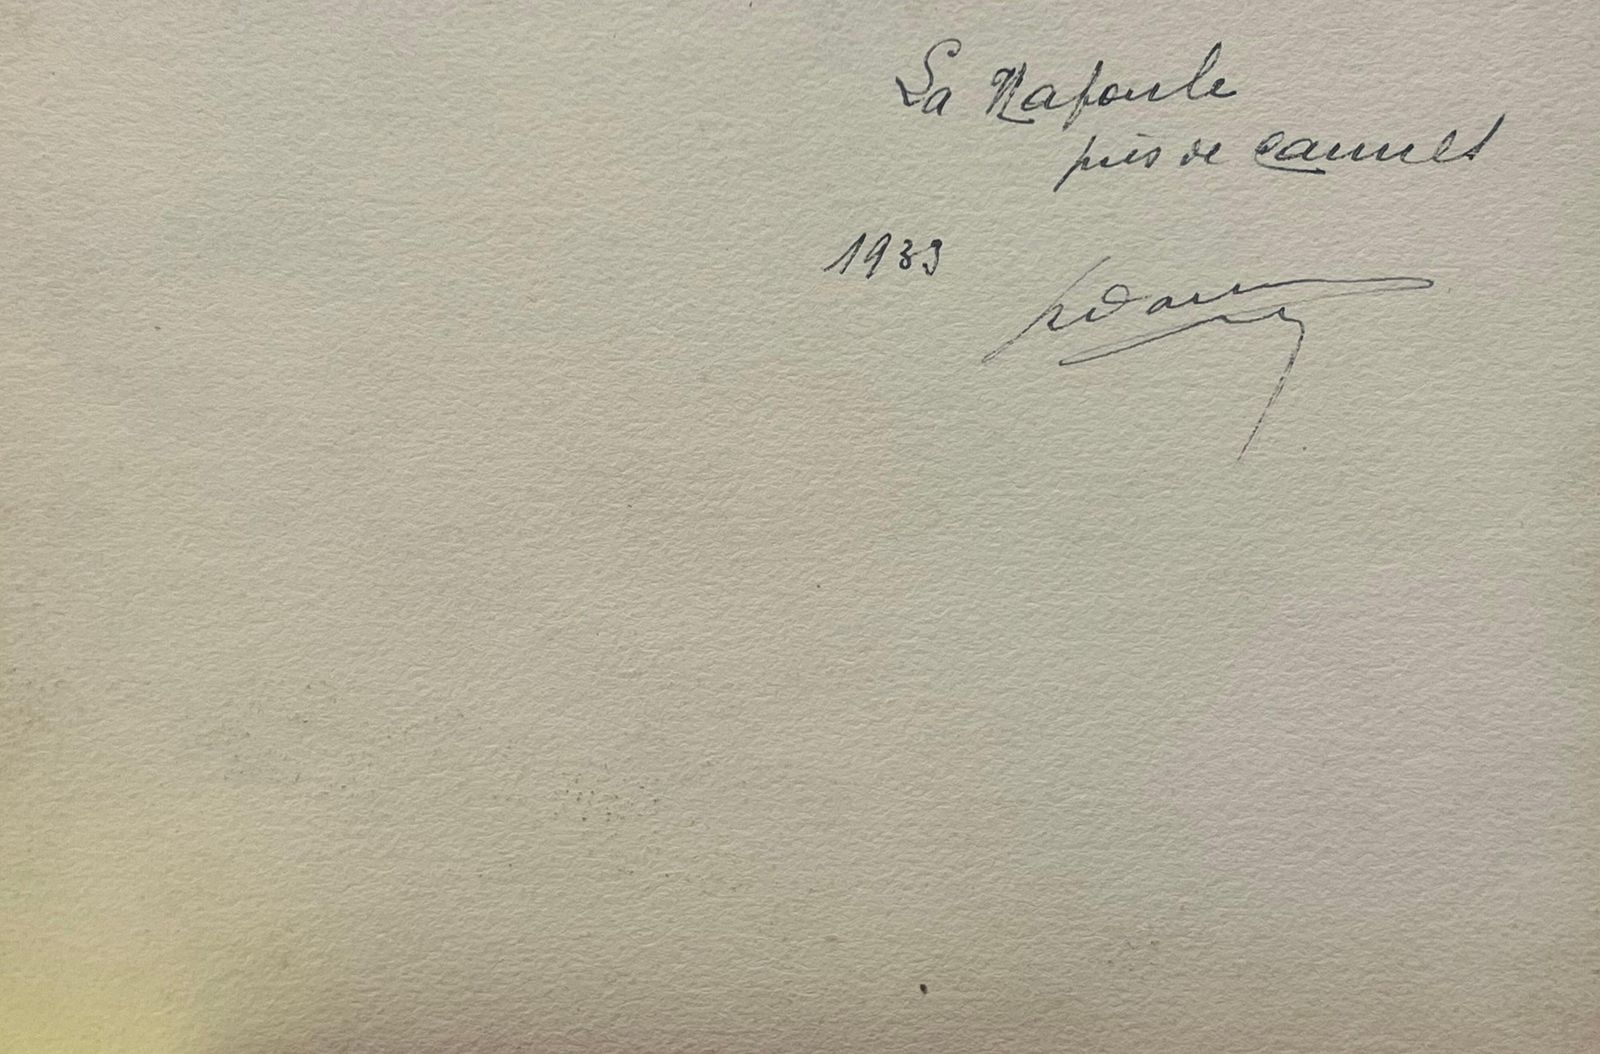 La Napoule
près de Cannes
1939